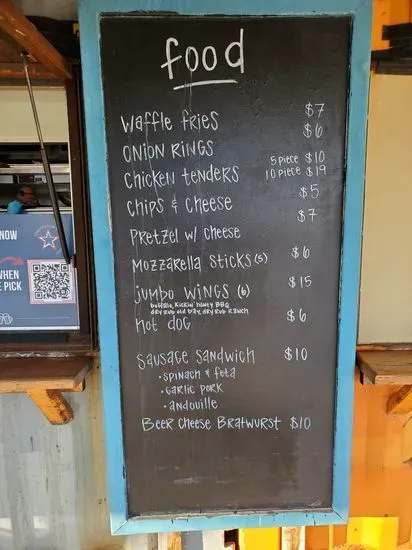 food
Waffle Fries $7
Onion Rings $6
Chicken tenders 5 piece $10
10 piece $19
Chips & Cheese $5
Pretzel w/ Cheese $7
Mozzarella Sticks (5) $6
Jumbo Wings (6) $15
buffalo, Kickin' honey BBQ
dry rub old bay, dry rub Ranch
hot dog $6
Sausage Sandwich $10
• Spinach & feta
• Garlic Pork
• andouille
Beer Cheese Bratwurst $10
NOW
WHEN
E PICK